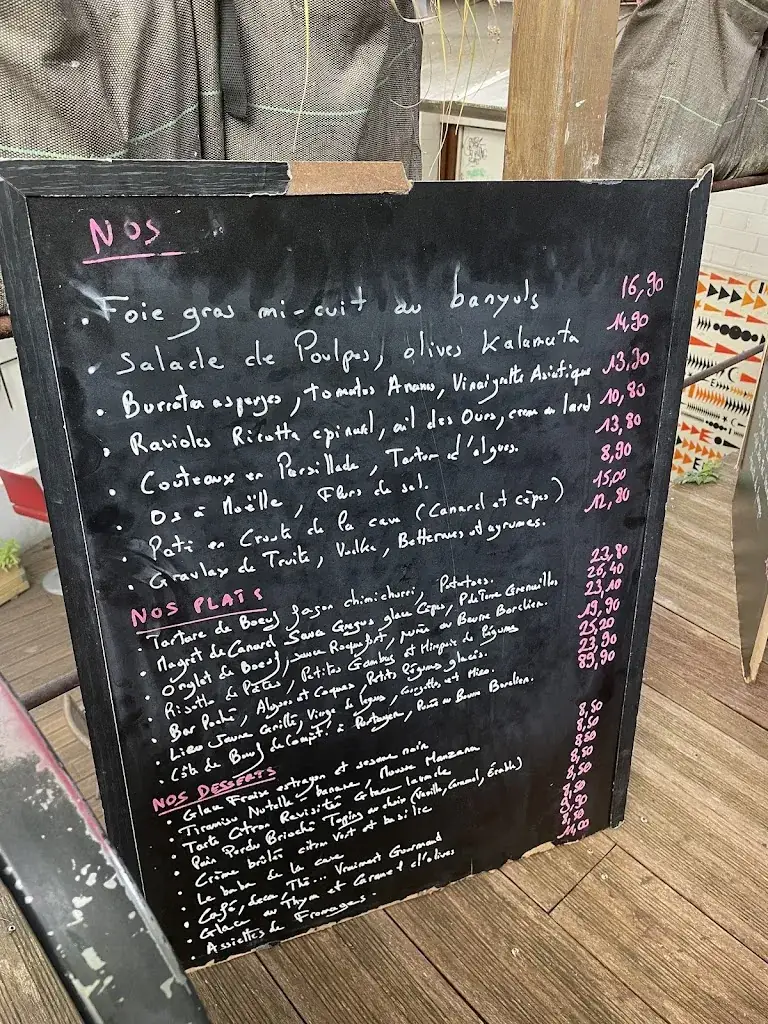 NOS
. Foie gras mi-cuit au banyuls 16,90
. Salade de Poulpes, olives Kalamata 14,90
. Burrata asperges, tomates Ananas, Vinaigrette Asiatique 13,90
. Ravioles Ricotta epinard, ail des Ours, creme au lard 10,80
. Couteaux en Persillade, Tartare d'algues. 13,80
. Os à Moëlle, Fleurs de sel. 8,90
. Paté en Croute de la cave (Canard et cèpes) 15,00
. Gravlax de Truite, Vodka, Betteraves et agrumes. 12,80
NOS PLATS
. Tartare de Boeuf façon chimichurri, Potatoes. 23,80
. Magret de Canard Sauce Cèpes, Grenailles 26,40
. Onglet de Boeuf, sauce Roquefort, purée au Beurre Bordelien. 23,10
. Risotto de Pâtes, Petites Gambas et Mirepoix de légumes 19,90
. Bar Poché, Algues et Coques, Petits légumes glacés. 25,20
. Lieu Jaune Grillé, Vierge de legumes, Courgettes et Miso. 23,90
. Côte de Boeuf de Compét' à Partager, Purée au Beurre Bordelien. 89,90
NOS DESSERTS
. Glace Fraise estragon et sesame noir 8,50
. Tiramisu Nutella-banane, Mousse Manzana 8,50
. Tarte Citron Revisité Glace 8,50
. Pain Perdu Brioché Topping au choix (Vanille, Caramel, Érable) 8,50
. Crème brûlée citron Vert et basilic 8,50
. Le baba de la cave 8,50
. Café, Deca, Thé... Vraiment Gourmand 9,90
. Glace au Thym et Caramel d'olives 8,50
. Assiettes de Fromages. 11,00